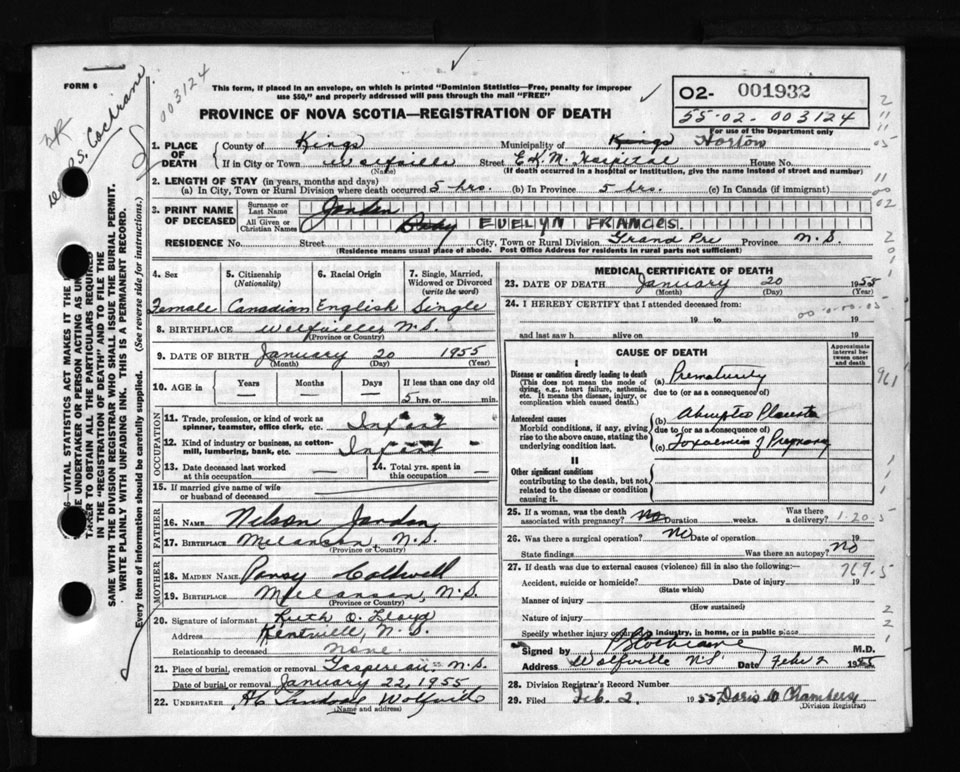 FORM 6
003124
This form, if placed in an envelope, on which is printed "Dominion Statistics—Free, penalty for improper
use $50," and properly addressed will pass through the mail "FREE"
PROVINCE OF NOVA SCOTIA—REGISTRATION OF DEATH
02- 001932
55-02-003124
For use of the Department only
1. PLACE OF DEATH
County of Kings Municipality of Kings Horton
If in City or Town Wolfville Street E.K.M. Hospital House No.
(Name) (If death occurred in a hospital or institution, give the name instead of street and number)
2. LENGTH OF STAY (in years, months and days)
(a) In City, Town or Rural Division where death occurred 5 hrs. (b) In Province 5 hrs. (c) In Canada (if immigrant)
3. PRINT NAME OF DECEASED
Surname or Last Name Jordan
All Given or Christian Names Baby EVELYN FRANCES.
RESIDENCE No. Street City, Town or Rural Division Grand Pre Province N.S.
(Residence means usual place of abode. Post Office Address for residents in rural parts not sufficient)
4. Sex
Female
5. Citizenship
(Nationality)
Canadian
6. Racial Origin
English
7. Single, Married,
Widowed or Divorced
(write the word)
Single
8. BIRTHPLACE Wolfville N.S.
(Province or Country)
9. DATE OF BIRTH January 20 1955
(Month) (Day) (Year)
10. AGE in
Years Months Days If less than one day old
5 hrs. or min.
OCCUPATION
11. Trade, profession, or kind of work as
spinner, teamster, office clerk, etc. Infant
12. Kind of industry or business, as cotton-
mill, lumbering, bank, etc. Infant
13. Date deceased last worked
at this occupation
14. Total yrs. spent in
this occupation
15. If married give name of wife
or husband of deceased
FATHER
16. NAME Nelson Jordan
17. BIRTHPLACE Melanson, N.S.
(Province or Country)
MOTHER
18. MAIDEN NAME Pansy Coldwell
19. BIRTHPLACE Melanson, N.S.
(Province or Country)
20. Signature of informant Ruth O. Lloyd
Address Kentville, N.S.
Relationship to deceased None.
21. Place of burial, cremation or removal Gaspereau N.S.
Date of burial or removal January 22, 1955
22. UNDERTAKER Wolfville
(Name and address)
MEDICAL CERTIFICATE OF DEATH
23. DATE OF DEATH January 20 1955
(Month) (Day) (Year)
24. I HEREBY CERTIFY that I attended deceased from:
19 to 19
and last saw h alive on 19
CAUSE OF DEATH
Approximate
interval be-
tween onset
and death
I
Disease or condition directly leading to death
(This does not mean the mode of
dying, e.g., heart failure, asthenia,
etc. It means the disease, injury, or
complication which caused death.)
(a) Prematurity
due to (or as a consequence of)
Antecedent causes
Morbid conditions, if any, giving
rise to the above cause, stating the
underlying condition last.
(b) Abruptio Placenta
due to (or as a consequence of)
(c) Toxaemia of Pregnancy
II
Other significant conditions
contributing to the death, but not
related to the disease or condition
causing it.
25. If a woman, was the death
associated with pregnancy? No Duration weeks. Was there
a delivery?
26. Was there a surgical operation? No Date of operation 19
State findings Was there an autopsy? No
27. If death was due to external causes (violence) fill in also the following:—
Accident, suicide or homicide? Date of injury 19
(State which)
Manner of injury
(How sustained)
Nature of injury
Specify whether injury occurred in industry, in home, or in public place
Signed by M.D.
Address Wolfville N.S. Date Feb 2 1955
28. Division Registrar's Record Number
29. Filed Feb. 2 1955 Doris Chambers
(Division Registrar)
961
769.5
SAME WITH THE DIVISION REGISTRAR WHO SHALL ISSUE THE BURIAL PERMIT.
WRITE PLAINLY WITH UNFADING INK. THIS IS A PERMANENT RECORD.
Every item of information should be carefully supplied. (See reverse side for instructions.)